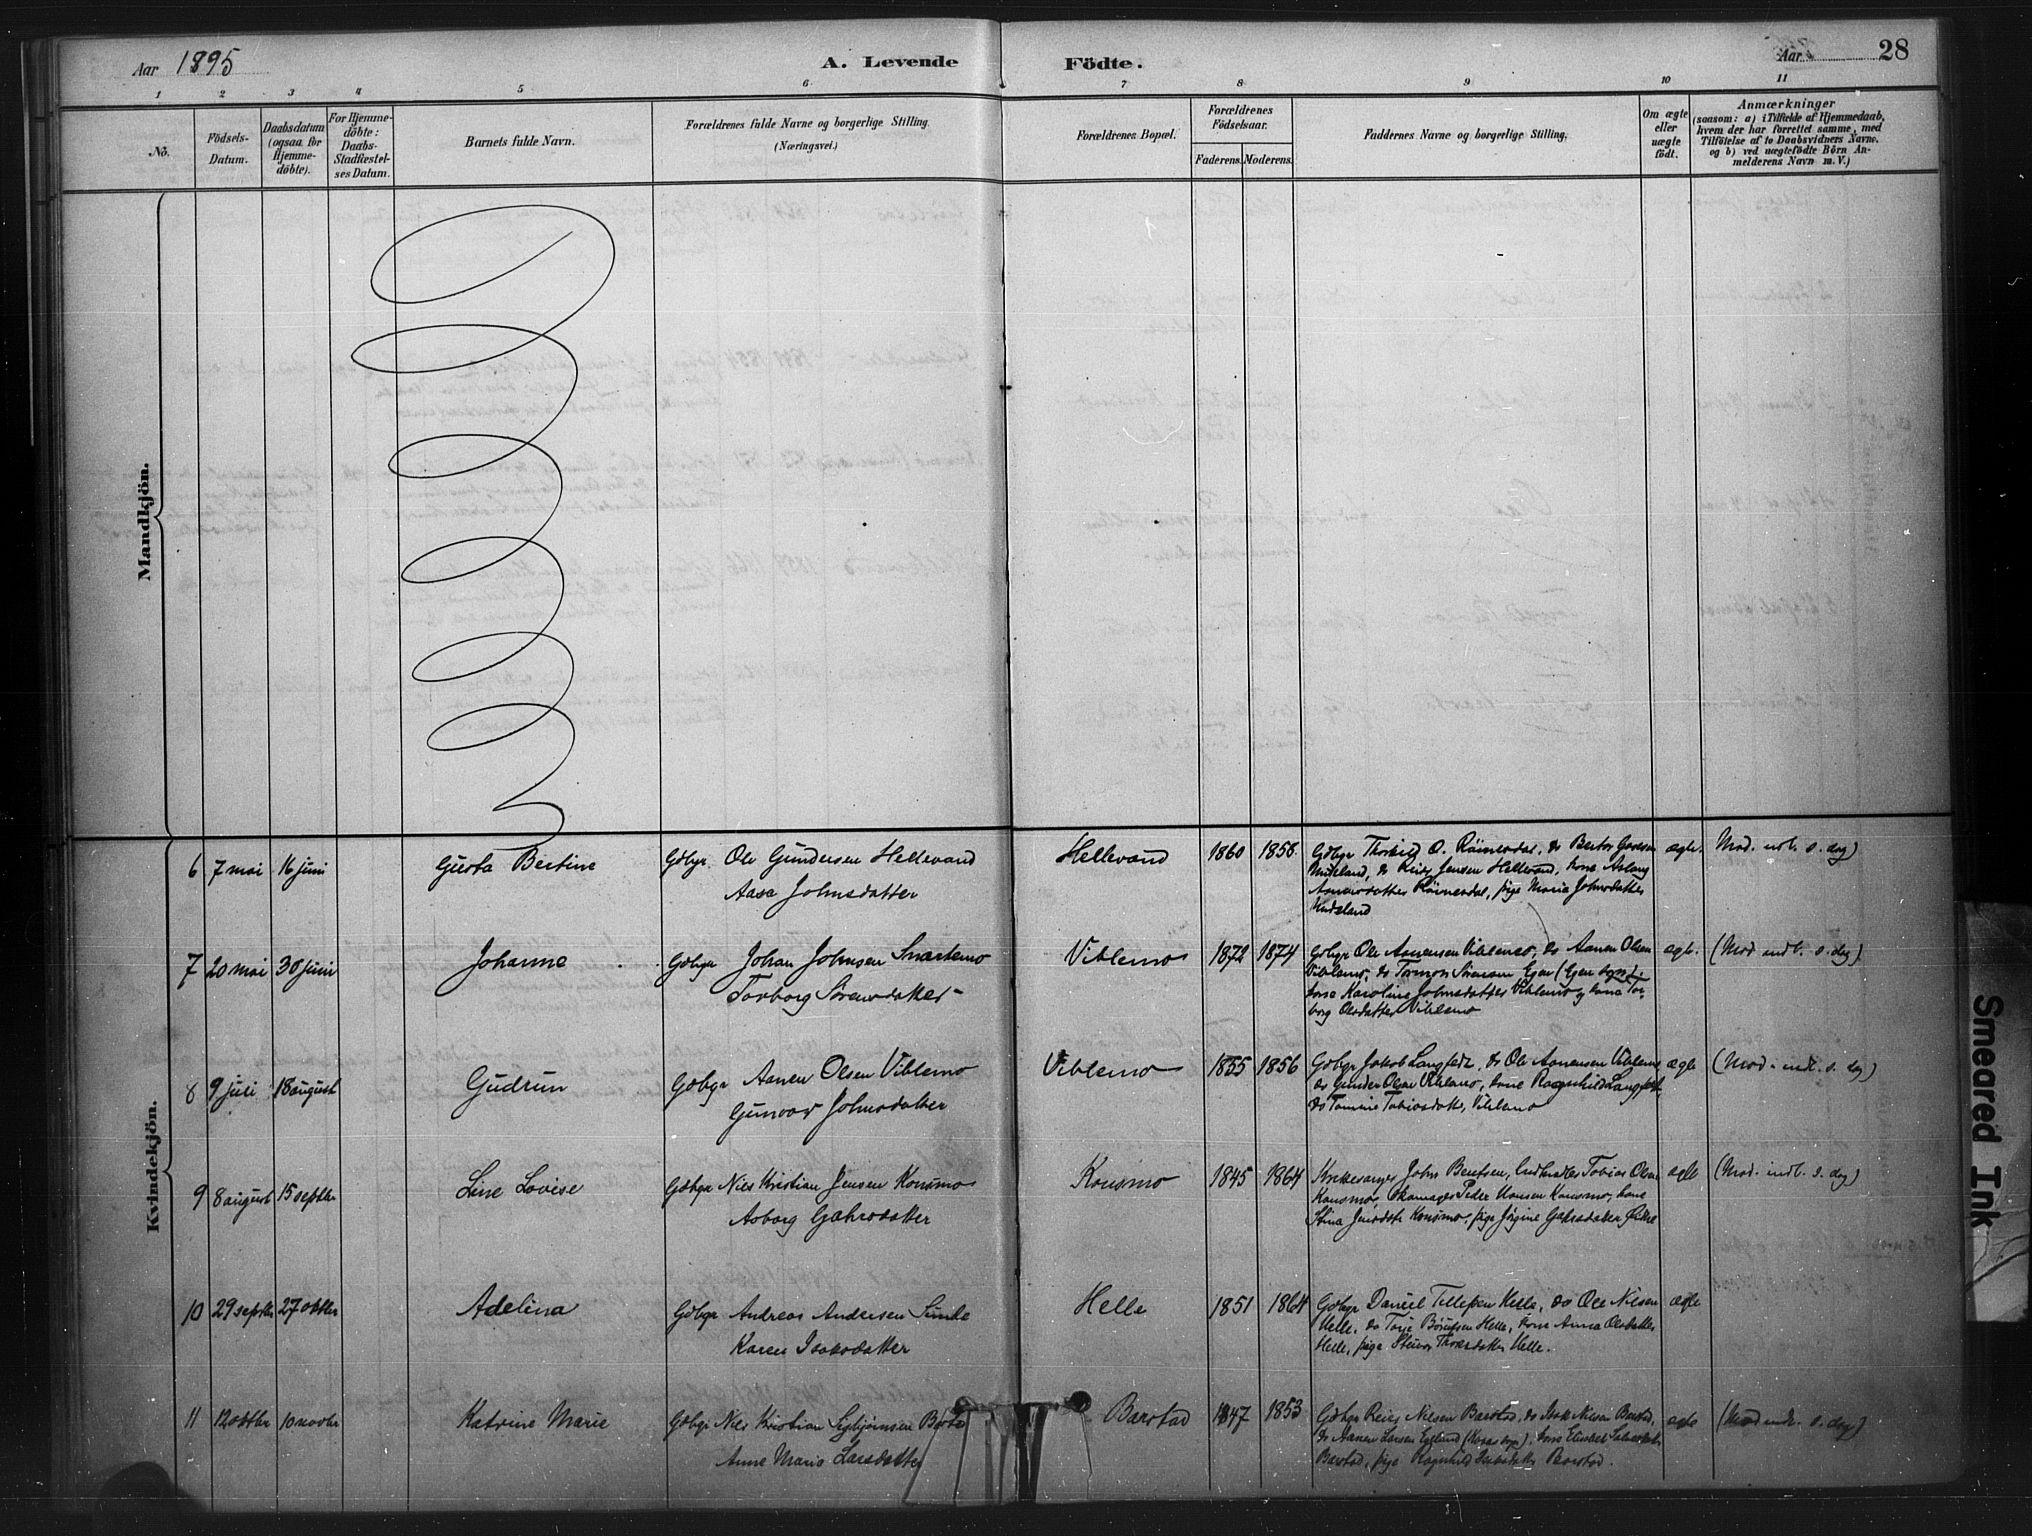 Aar 1895
A. Levende Födte.
Aar 28
1 2 3 4 5 6 7 8 9 10 11
No.
Födsels-
Datum.
Daabsdatum
(ogsaa for
Hjemme-
döbte).
For Hjemme-
döbte:
Daabs-
Stadfæstel-
ses Datum.
Barnets fulde Navn.
Forældrenes fulde Navne og borgerlige Stilling.
(Næringsvei.)
Forældrenes Bopæl.
Forældrenes
Födselsaar.
Faderens. Moderens.
Faddernes Navne og borgerlige Stilling.
Om ægte
eller
uægte
födt.
Anmærkninger
(saasom: a) i Tilfælde af Hjemmedaab,
hvem der har forrettet samme, med
Tilföielse af to Daabsvidners Navne.
og b) ved uægtefödte Börn An-
melderens Navn m. V.)
Mandkjön.
Kvindekjön.
6 7 mai 16 juni Gusta Bertine Gdbgr. Ole Gundersen Hellevand
Aasa Johnsdatter
Hellevand 1860 1858
Gdbgr Thorkild O. Röinesdal, do
do Reier Jensen Hellevand, kone Aslaug
Röinesdal, pige Maria Johnsdatter
ægte.
7 20 mai 30 juni Johanne Gdbgr Johan Johnsen Snartemo
Torborg Sörensdatter
Viblemo 1872 1874
Gdbgr Ole Aanensen Viblemo, do Aanen Olsen
Viblemo, do Tormon Sörensen Egen (Egen sogn),
kone Karoline Johnsdatter Viblemo og kone Tor-
borg Olsdatter Viblemo
ægte. (Mod. indt. s. dag)
8 9 juli 18 august Gudrun Gdbgr Aanen Olsen Viblemo
Gunvor Johnsdatter
Viblemo 1855 1856
Gdbgr Jakob Langfeldt, do Ole Aanensen Viblemo
do Gunder Olsen Viblemo, kone Ragnhild Langfeldt,
do Tomine Tobiasdatter, Viblemo
ægte (Mod. indt. s. dag)
9 8 august 15 septbr Line Lovise Gdbgr Nils Kristian Jensen Konsmo
Aaborg Gahrsdatter
Konsmo 1845 1864
Kirkesanger John Bentsen, Tobias Olsen
Konsmo, Skomager Peder Hansen Konsmo, kone
Stina Jensdatter Konsmo, pige Jörgine Gahrsdatter
ægte (Mod. indt. s. dag)
10 29 septbr 27 oktbr Adelina Gdbgr Andreas Andersen Sunde
Karen Isaksdatter
Helle 1851 1864
Gdbgr Daniel Tellefsen Helle, do Ole Nilsen
Helle, do Terje Börufsen Helle, kone Anna Olsdatter
Helle, pige Thorsdatter Helle.
ægte
11 12 oktbr 10 novbr Katrine Marie Gdbgr Nils Kristian Sigbjörnsen
Anne Maria Larsdatter
Barstad 1847 1853
Gdbgr Reier Nilsen Barstad, do Isak Nilsen Barstad,
do Aanen Larsen Egeland, kone Elisabet
Barstad, pige Ragnhild Isaksdatter Barstad.
ægte (Mod. indt. s. dag)
Smeared Ink